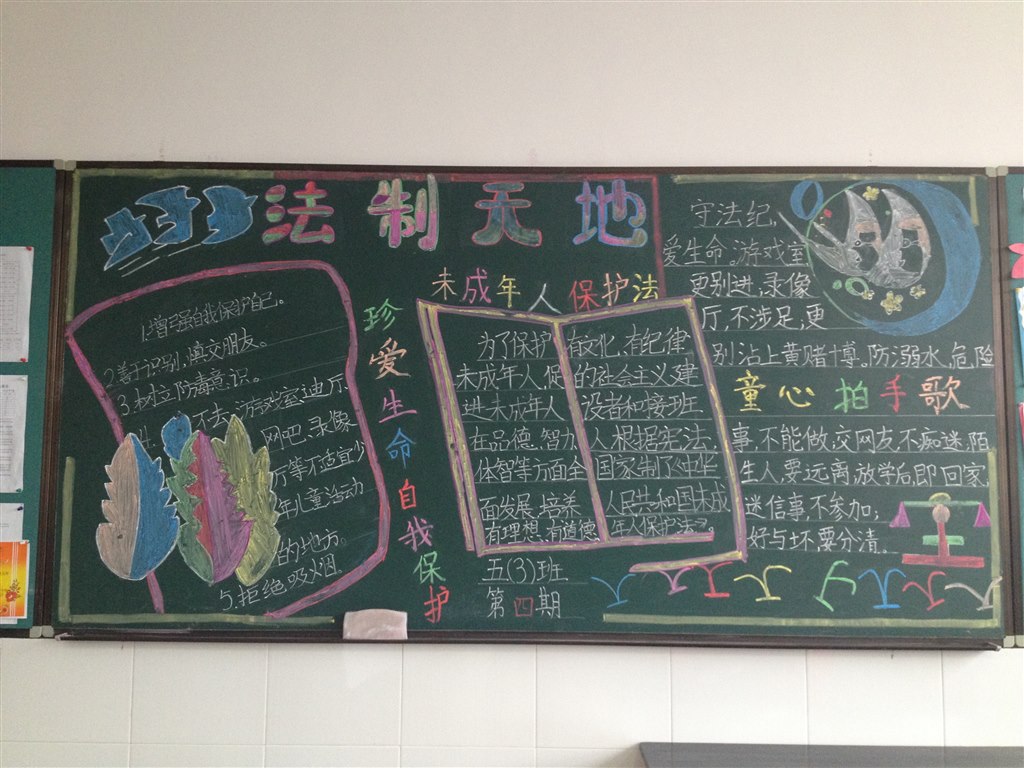 法制天地
1.增强自我保护自己。
2.善于识别,慎交朋友。
3.树立防毒意识。
4.不去游戏室迪厅
网吧、录像
厅等不适宜少
年儿童活动
的地方。
5.拒绝吸烟。
珍爱生命自我保护
未成年人保护法
为了保护
未成年人,促
进未成年人
在品德、智力
体智等方面全
面发展,培养
有理想、有道德、
有文化、有纪律
的社会主义建
设者和接班
人,根据宪法,
国家制了《中华
人民共和国未成
年人保护法》。
五(3)班
第四期
守法纪,
爱生命,游戏室
更别进,录像
厅,不涉足,更
别沾上黄赌博。防溺水,危险
童心拍手歌
事,不能做,交网友,不痴迷,陌
生人,要远离,放学后,即回家,
迷信事,不参加;
好与坏要分清。